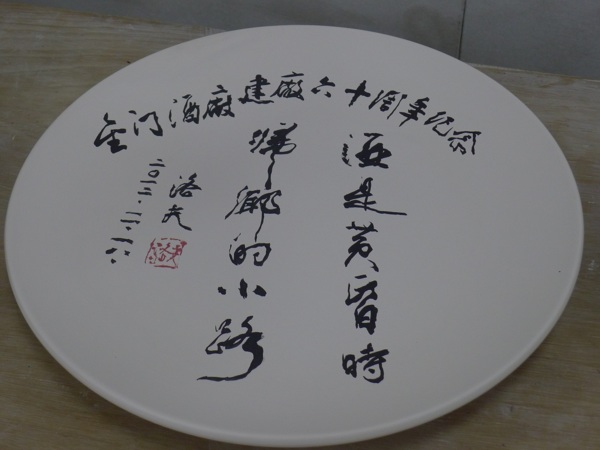 金门酒廠建廠六十周年纪念
酒是黄昏時
歸鄉的小路
洛夫
二〇一二.十二.十六.